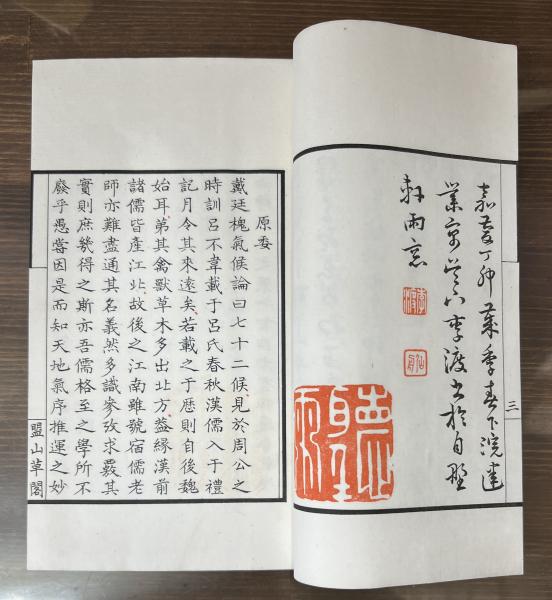 嘉慶丁卯歲季春下浣建
業李渡書於自野
軒雨窓
三
原委
戴廷槐氣候論曰七十二候見於周公之
時訓呂不韋載于呂氏春秋漢儒入于禮
記月令其來遠矣若載之于歷則自後魏
始耳第其禽獸草木多出北方葢緣漢前
諸儒皆產江北故後之江南雖號宿儒老
師亦難盡通其名義然多識參攷求覈其
實則庶幾得之斯亦吾儒格至之學所不
廢乎愚嘗因是而知天地氣序推運之妙
盟山草閣